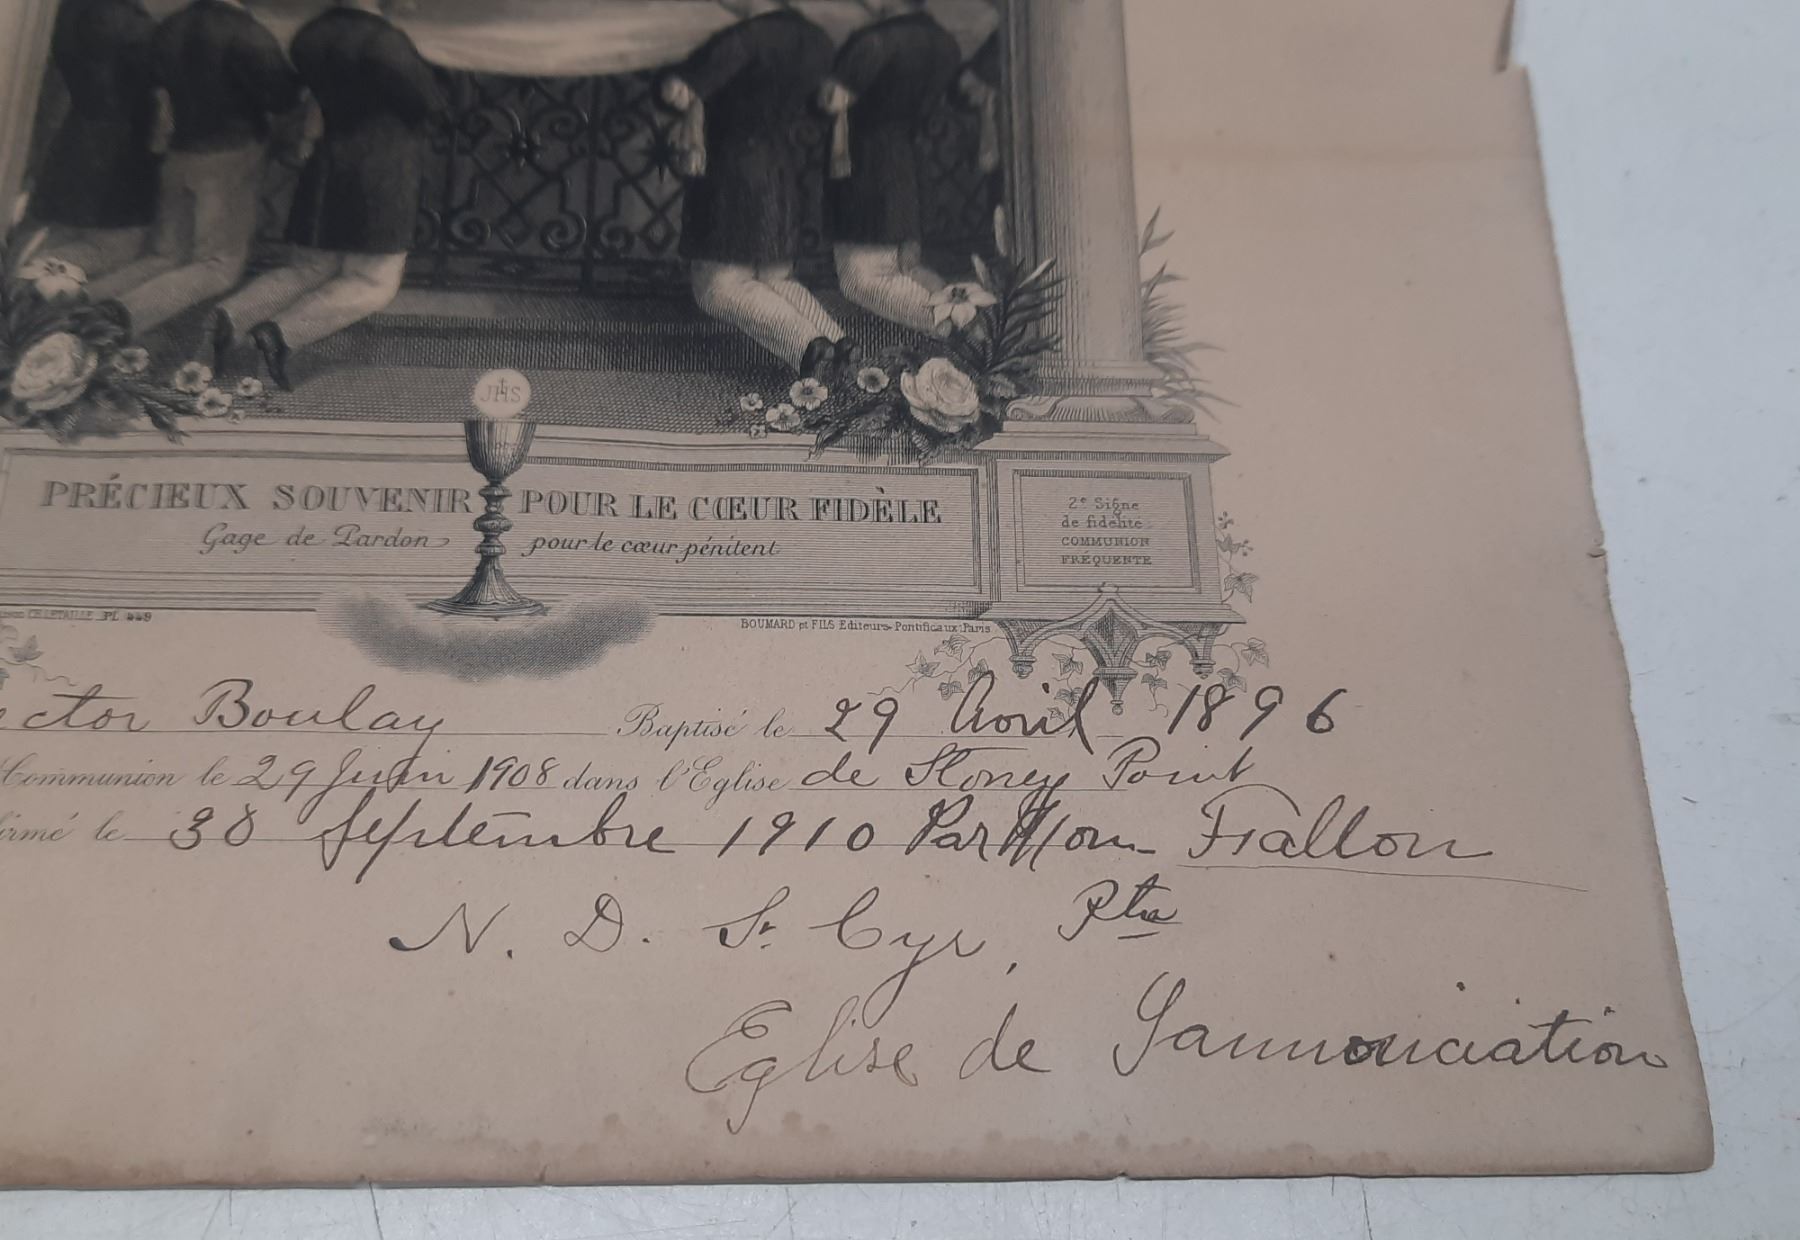 JHS
PRÉCIEUX SOUVENIR POUR LE CŒUR FIDÈLE
Gage de Pardon pour le cœur pénitent
2e Signe
de fidélité:
COMMUNION
FRÉQUENTE
CHAPTAILLE PL 449
BOUMARD et FILS Editeurs-Pontificaux Paris
ector Boulay Baptisé le 29 Avril 1896
Communion le 29 Juin 1908 dans l'Eglise de Stoney Point
irmé le 30 Septembre 1910 Par Mon Fallon
N. D. St Cyr, Ptre
Eglise de L'annonciation